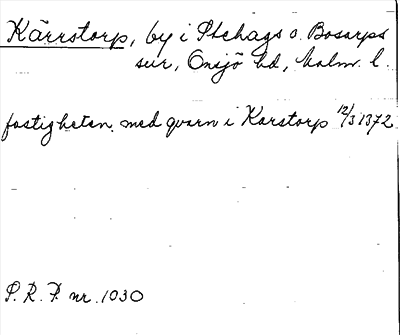 Kärrstorp, by i Stehags o. Bosarps
snr, Onsjö hd, Malm. l.
fastigheten med qvarn i Karstorp 12/3 1372
S. R. P. nr. 1030